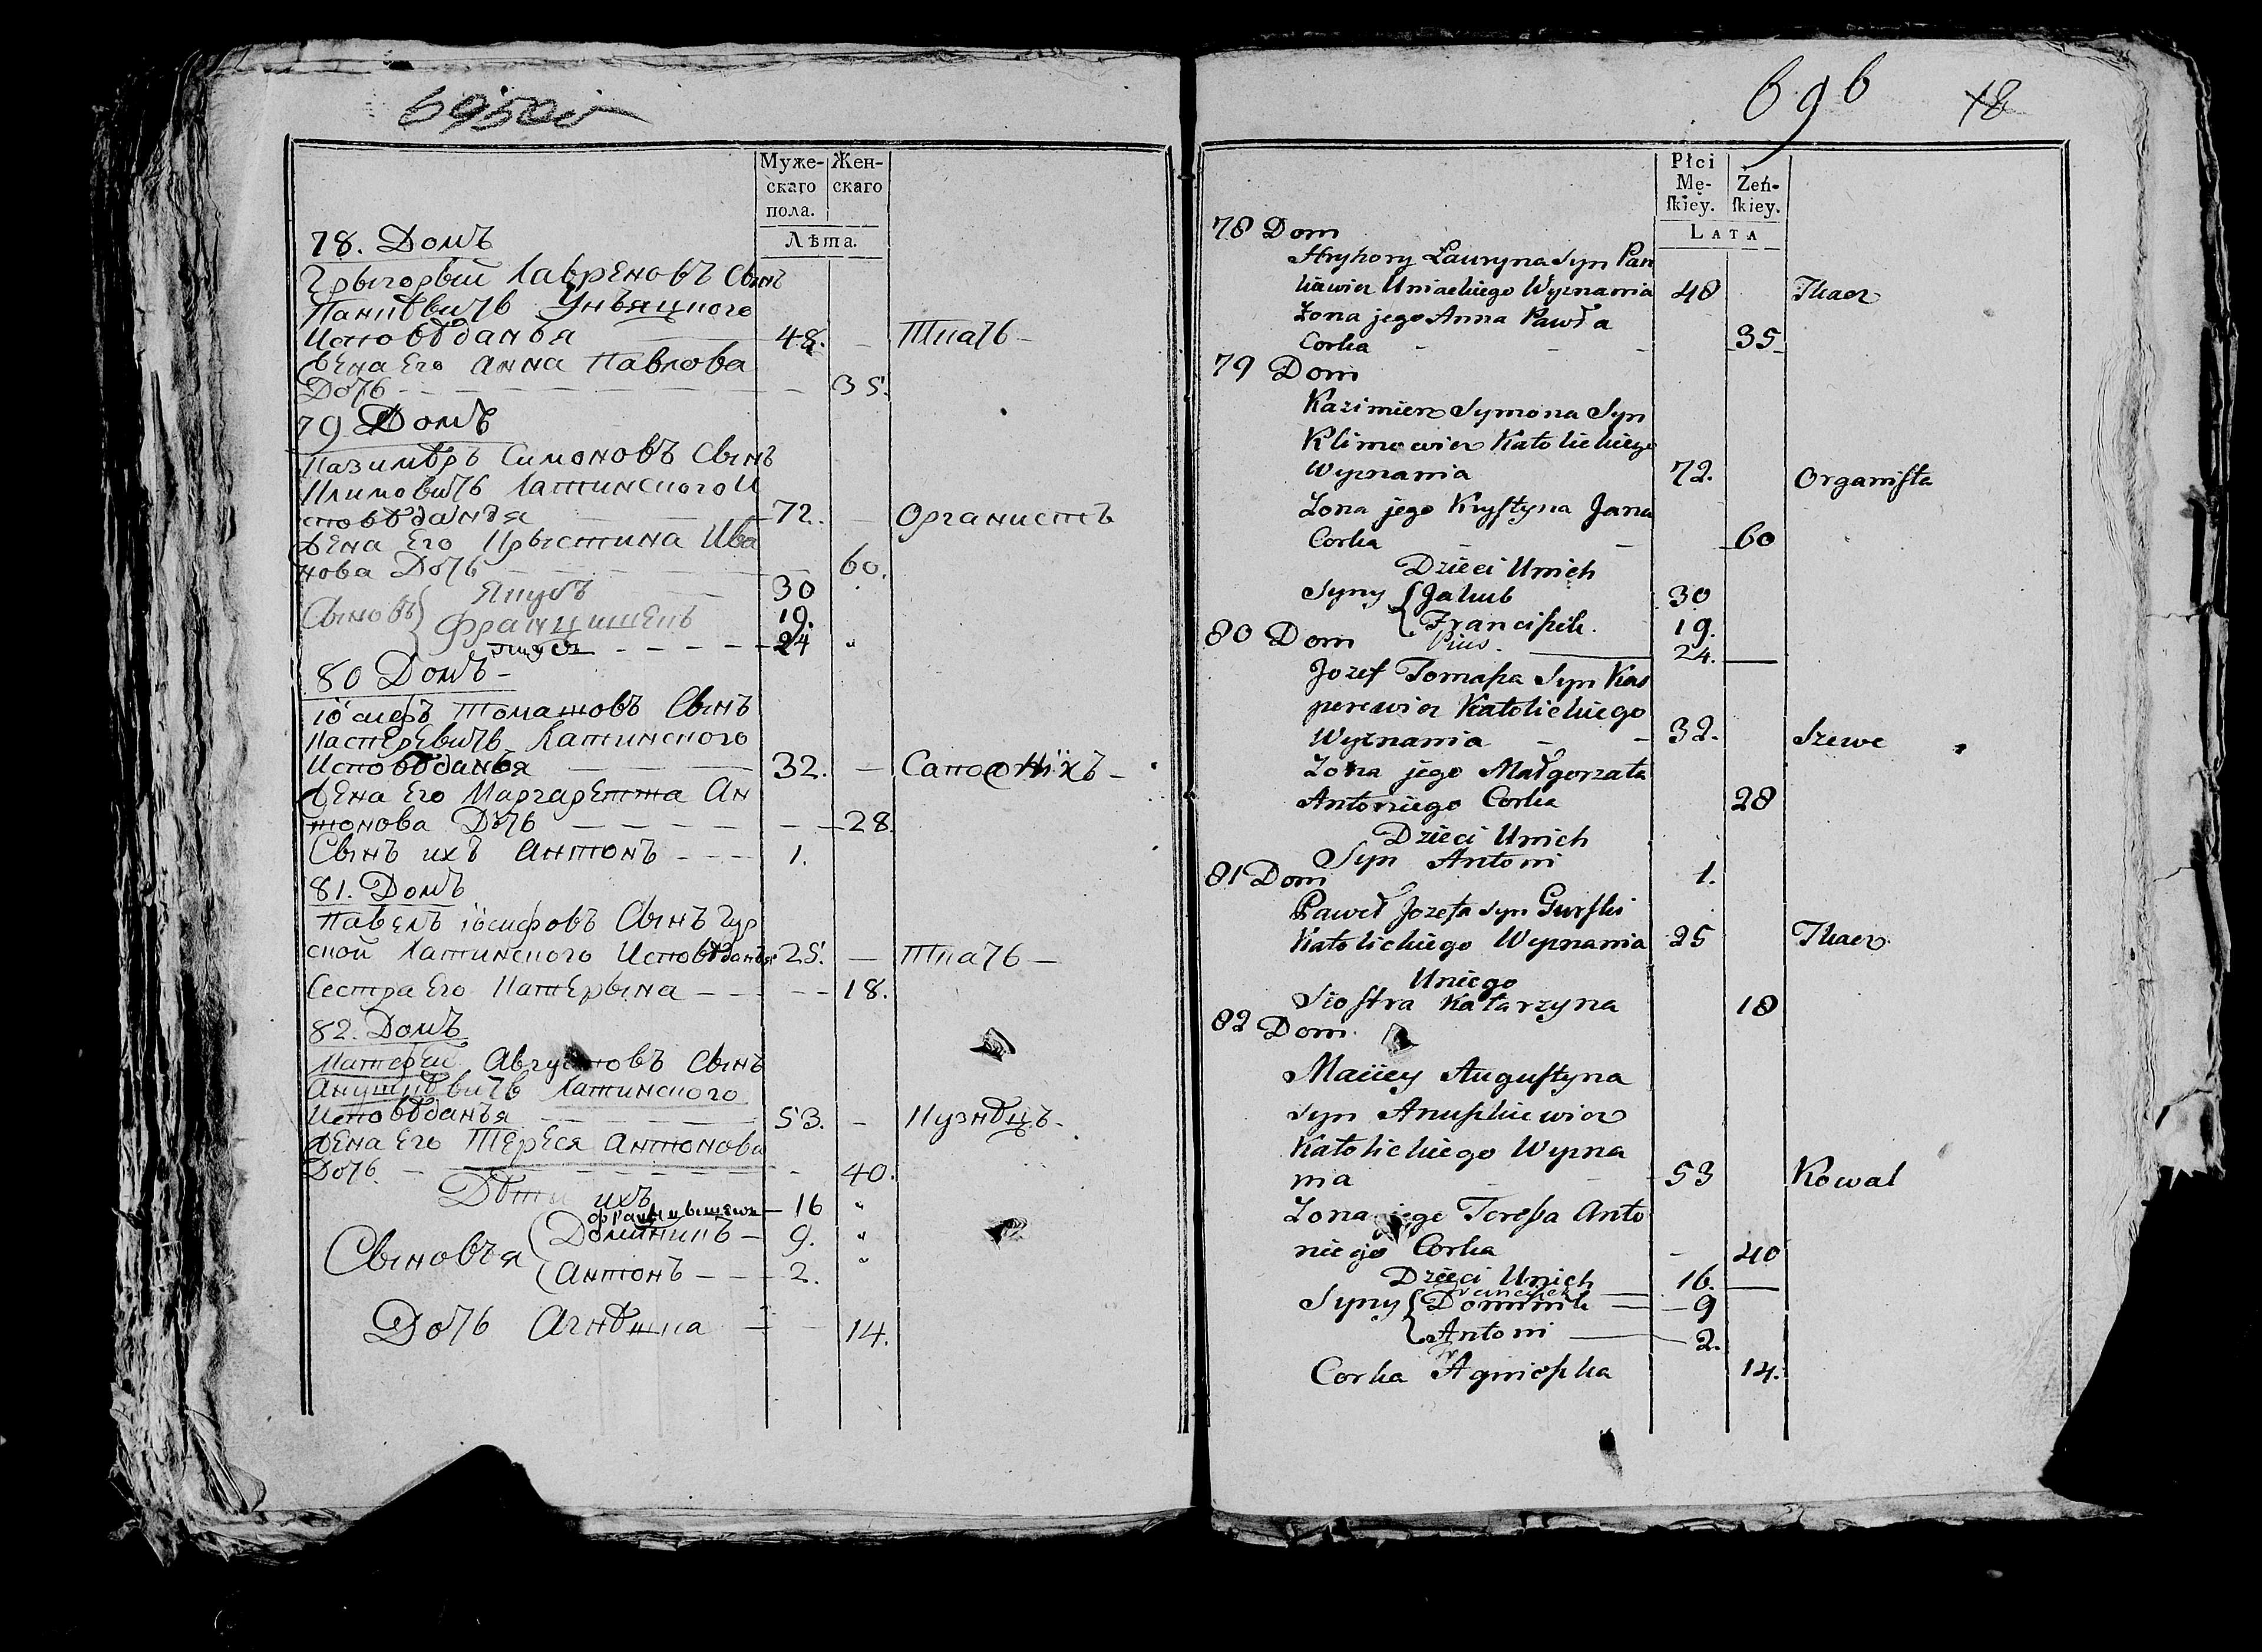 Муже-
скаго
пола.
Жен-
скаго
Лѣта.
78. Домъ
Грыгорый Лавреновъ Сынъ
Панкѣвичь Унѣяцкого
Исповѣданья 48. Ткачь
Жена Его Анна Павлова
Дочь 35.
79 Домъ
Казимѣръ Симоновъ Сынъ
Климовичь Латинского И
сповѣданья 72. Органистъ
Жена Его Крыстина Ива
нова Дочь 60.
Якубъ 30
Сыновѣ Францишекъ 19.
24 "
80 Домъ
Іосифъ Томашовъ Сынъ
Касперевичь Латинского
Исповѣданья 32. Сапожнікъ
Жена Его Маргарета Ан
тонова Дочь 28.
Сынъ ихъ Антонъ 1.
81. Домъ
Павелъ Іосифовъ Сынъ Гур
ской Латинского Исповѣданья 25. Ткачь
Сестра Его Катерына 18.
82. Домъ
Матфѣй Августовъ Сынъ
Анушкѣвичь Латинского
Исповѣданья 53. Кузнѣцъ
Жена Его Тереся Антонова
Дочь 40.
Дѣти ихъ
Францышекъ 16 "
Сыновья Доминикъ 9. "
Антонъ 2. "
Дочь Агнѣшка 14.
696 18
Płci
Mę-
ſkiey.
Żeń-
ſkiey.
LATA
78 Dom
Hryhory Lauryna Syn Pan
kiewicz Uniackiego Wyznania 48 Tkacz
Zona jego Anna Pawła
Corka 35
79 Dom
Kazimierz Symona Syn
Klimowicz Katolickiego
Wyznania 72. Organiſta
Zona jego Kryſtyna Jana
Corka 60
Dzieci Unich
Syny Jakub 30
Franciſzek. 19.
80 Dom Pius. 24.
Jozef Tomaſza Syn Kas
perowicz Katolickiego
Wyznania 32. Szewc
Zona jego Małgorzata
Antoniego Corka 28
Dzieci Unich
Syn Antoni 1.
81 Dom
Paweł Jozefa Syn Gurſki
Katolickiego Wyznania 25 Tkacz
Uniego
Sioſtra Katarzyna 18
82 Dom
Maciey Auguſtyna
Syn Anuſzkiewicz
Katolickiego Wyzna
nia 53 Kowal
Zona jego Tereſsa Anto
niego Corka 40
Dzieci Unich
Franciszek 16.
Syny Dominik 9
Antoni 2.
Corka Agnieſzka 14.